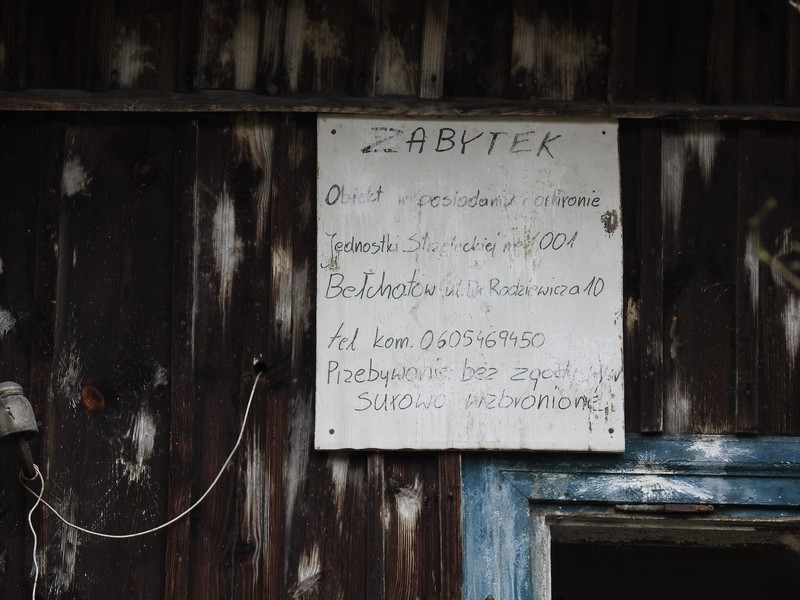 ZABYTEK
Obiekt w posiadaniu i ochronie
Jednostki Strzeleckiej nr 1001
Bełchatów ul. Wł. Radziewicza 10
tel kom. 0605469450
Przebywanie bez zgody w/w
surowo wzbronione